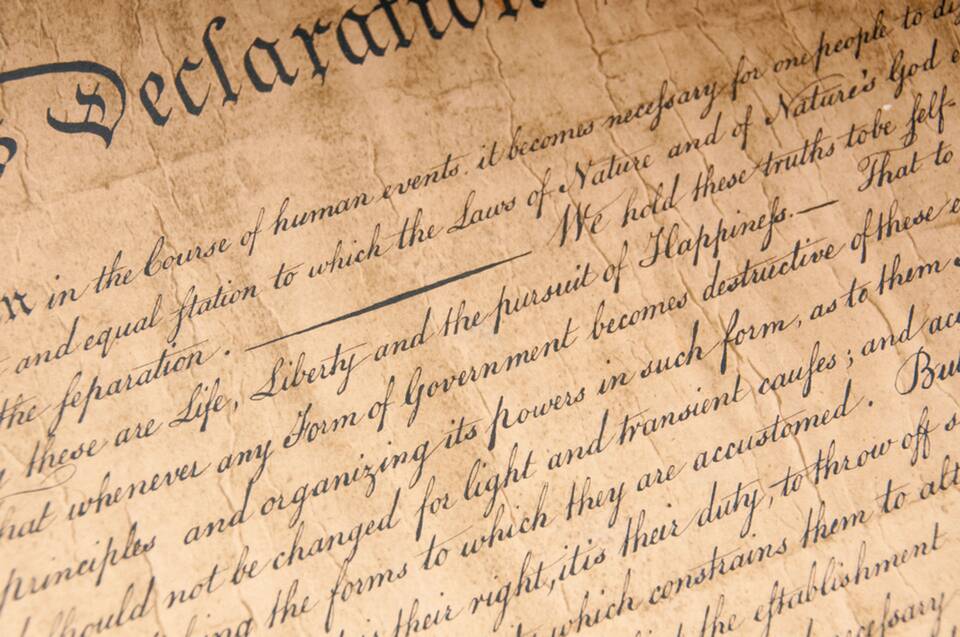 Declaration
in the Course of human events. it becomes necessary for one people to
and equal station to which the Laws of Nature and of Nature's God
the separation. — We hold these truths to be self-
these are Life, Liberty and the pursuit of Happiness.— That to
that whenever any Form of Government becomes destructive of these
principles and organizing its powers in such form, as to them
should not be changed for light and transient causes; and
the forms to which they are accustomed. But
their right, it is their duty, to throw off
which constrains them to
the establishment